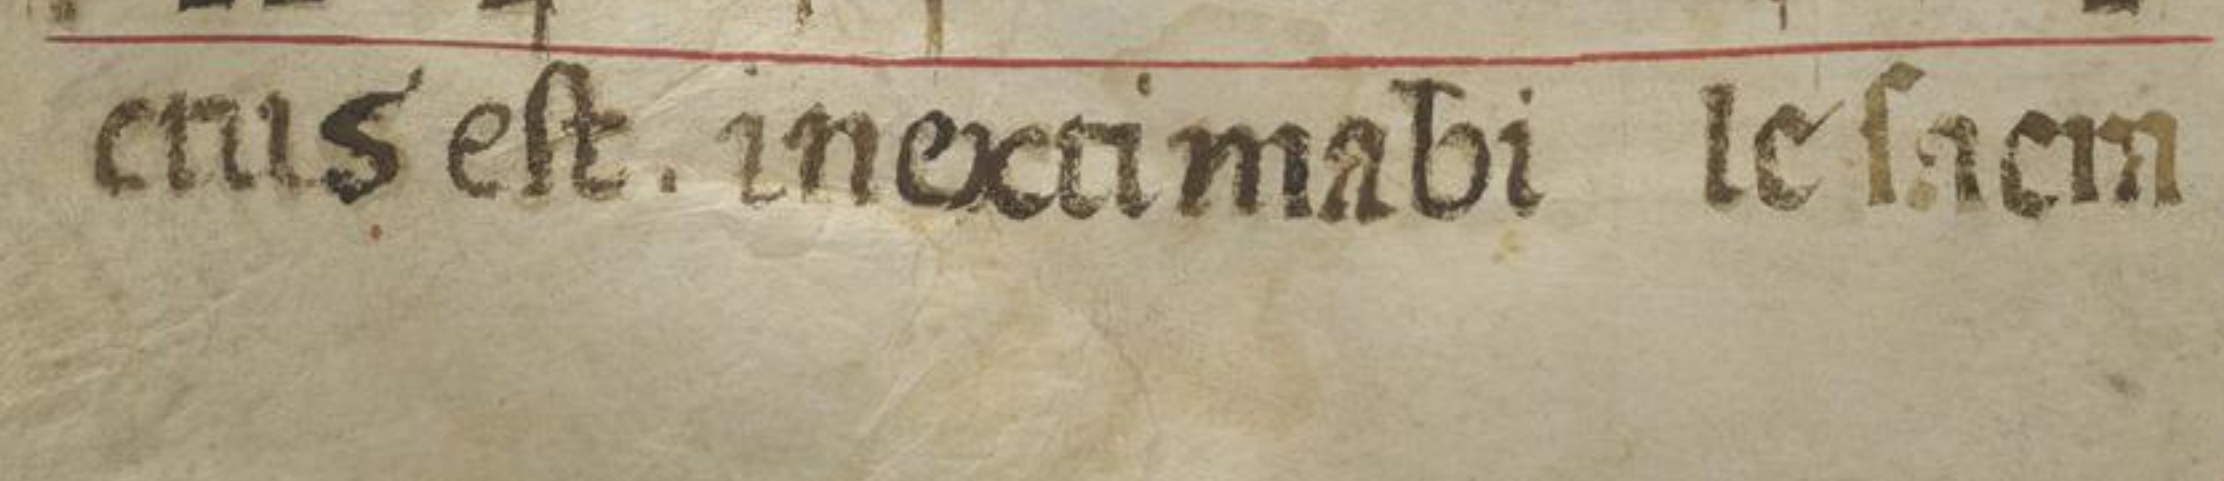 ctus eſt. inextimabi le ſacra